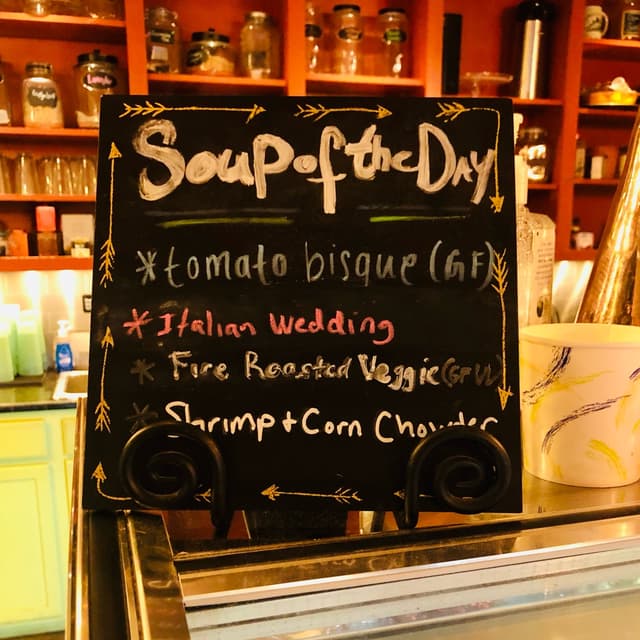 Soup of the Day
*tomato bisque (GF)
*Italian Wedding
* Fire Roasted Veggie
* Shrimp + Corn Chowder